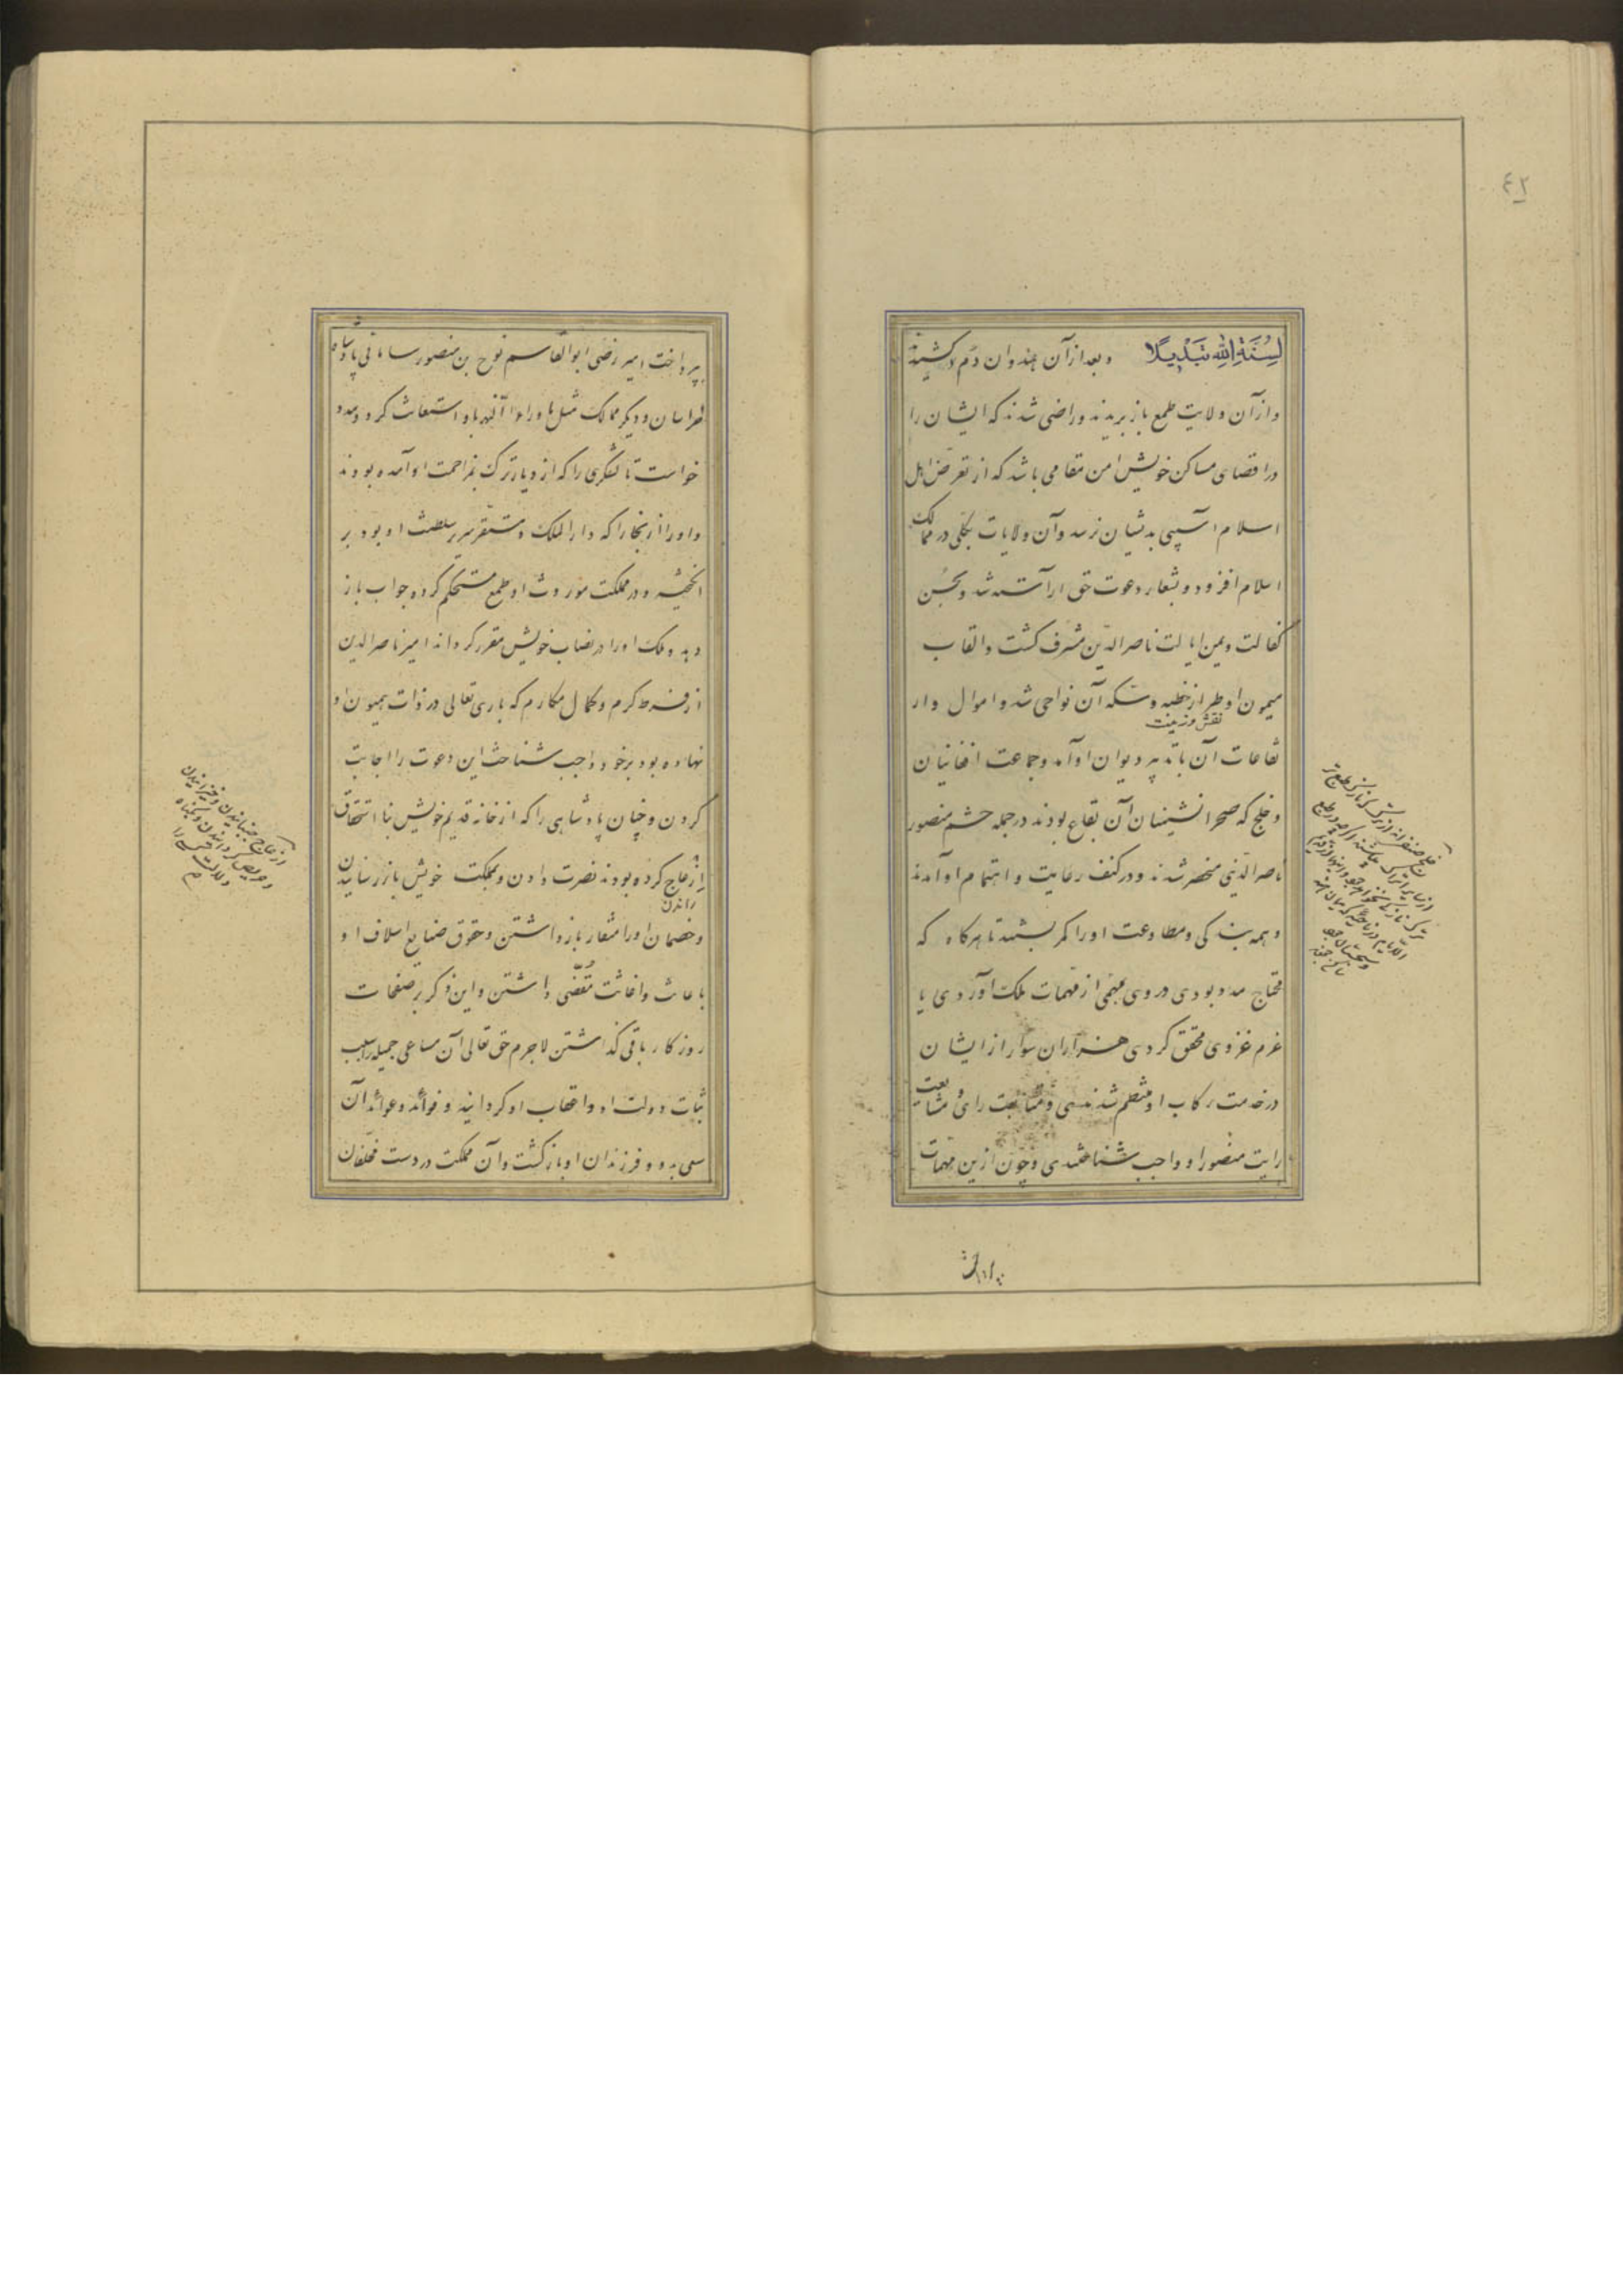 ٤٢
لِسُنَّةِ اللهِ تَبْدِيلًا وبعد ازآن هندوان دم درکشیدند
وازآن ولایت طمع باز بریدند وراضی شدند که ایشان را
دراقصای مساکن خویش امن مقامی باشد که از تعرض اهل
اسلام آسیبی بدیشان نرسد وآن ولایات بکلی در ممالک
اسلام افزود و بشعار دعوت حق آراسته شد وبحسن
کفالت ویمن ایالت ناصرالدین مشرف کشت والقاب
میمون او طراز خطبه وسکه آن نواحی شد واموال وار
نقش وزینت
تفاعات آن باتدبیر دیوان اوآمد وجماعت افغانیان
وخلج که صحرانشینان آن بقاع بودند درجمله حشم منصور
ناصرالدینی منحصر شدند ودرکنف رعایت واهتمام اوآمدند
وهمه بندکی ومطاوعت اورا کمر بستند تا هرکاه که
محتاج مدد بودی دروی بمهمی از مهمات ملک آوردی یا
عزم غزوی محقق کردی هزاران سوار ازایشان
درخدمت رکاب او منتظم شدندی ومتابعت رای ومشایعت
رایت منصور او واجب شناختندی وچون ازین مهمات
بپرداخت
بپرداخت امیر رضی ابوالقاسم نوح بن منصور سامانی پادشاه
خراسان ودیکر ممالک مثل ماوراء النهر باو استغاثت کرد ومدد
خواست تا لشکری را که از دیار ترک بمزاحمت اوآمده بودند
واورا از بخارا که دارالملک ومستقر سریر سلطنت او بود بر
انکیخته ودر مملکت موروث او طمع مستحکم کرده جواب باز
دهد وملک اورا درنصاب خویش مقرر کرداند امیر ناصرالدین
از فرط کرم وکمال مکارم که باری تعالی درذات همیون او
نهاده بود برخود واجب شناخت این دعوت را اجابت
کردن وچنان پادشاهی را که از خانه قدیم خویش بنا استحقاق
ازعاج کرده بودند نصرت دادن وبمملکت خویش باز رسانیدن
راندن
وخصمان اورا مثغار بازداشتن وحقوق ضایع اسلاف او
باعاث واغاثت مقضی داشتن واین ذکر بر صفحات
روزکار باقی کذاشتن لاجرم حق تعالی آن مساعی جمیله راسبب
ثبات دولت او واعقاب او کردانید وفوائد وعوائد آن
سعی بدو وفرزندان او بازکشت وآن مملکت در دست مخلفان
ازعاج جنبانیدن وخیزانیدن
وحریص کردانیدن